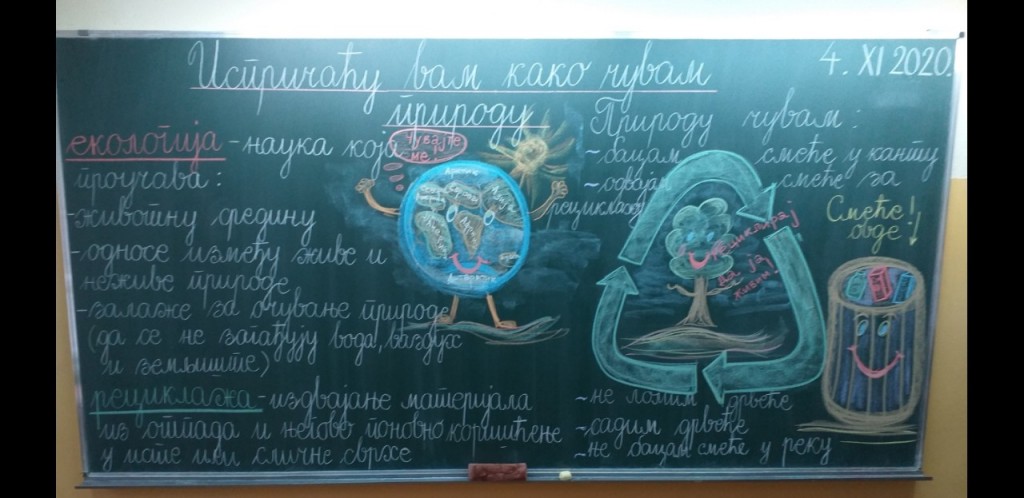 Испричаћу вам како чувам
природу
4. XI 2020.
екологија - наука која
проучава:
-животну средину
-односе између живе и
неживе природе
-залаже за очување природе
(да се не загађују вода, ваздух
и земљиште)
рециклажа - издвајање материјала
из отпада и његово поновно коришћење
у исте или сличне сврхе
Чувајте
ме!
Природу чувам:
~бацам смеће у канту
~одвајам смеће за
рециклажу
Рециклирај
да ја
живим!
Смеће!
овде!
~не ломим дрвеће
~садим дрвеће
~не бацам смеће у реку